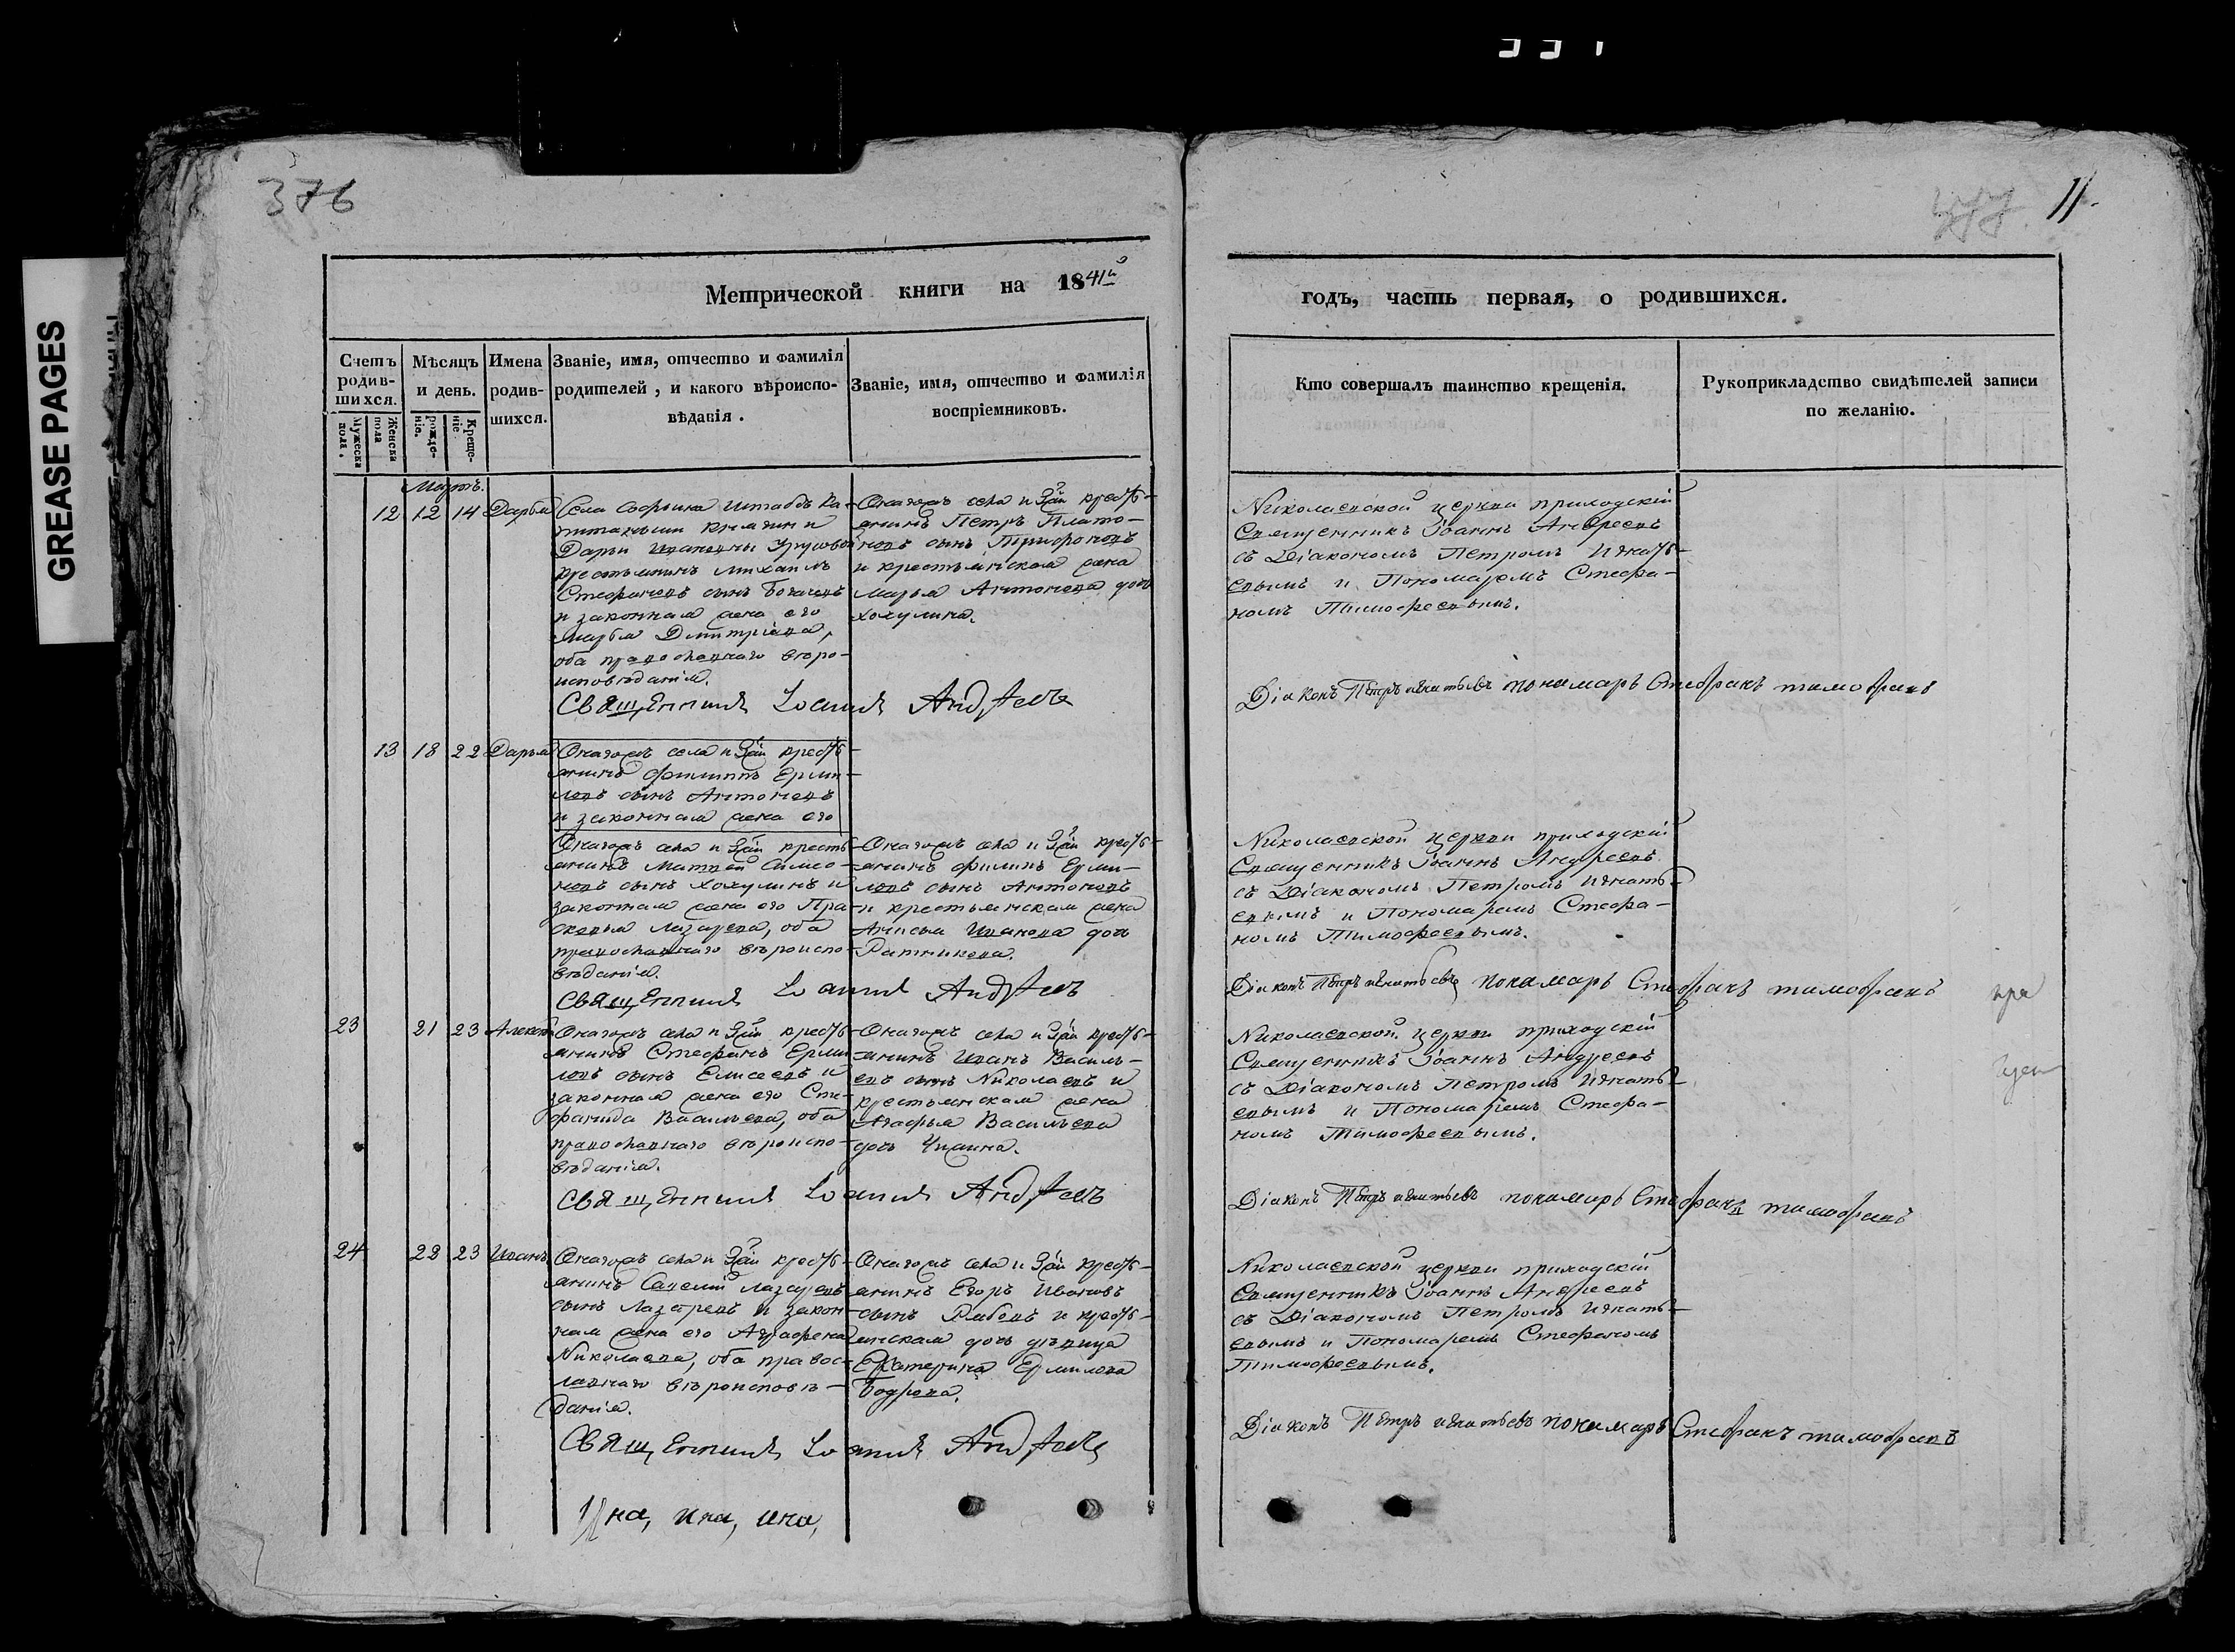 GREASE PAGES
376
11.
Метрической книги на 1841й
годъ, часть первая, о родившихся.
Счетъ родившихся.
Мужеска пола.
Женска пола
Мѣсяцъ и день.
Рожденіе.
Крещеніе.
Имена родившихся.
Званіе, имя, отчество и фамилія
родителей, и какого вѣроиспо-
вѣданія.
Званіе, имя, отчество и фамилія
воспріемниковъ.
Кто совершалъ таинство крещенія.
Рукоприкладство свидѣтелей записи
по желанію.
Мартъ.
12 12 14 Дарья
Села Софьина Штабсъ Ка-
питанъши княгини
Дарьи Ивановны Урусовой
крестьянинъ Михаилъ
Стефановъ сынъ
и законная жена его
Марья Дмитріева,
оба православнаго вѣро-
исповѣданія.
Онагожъ села и Гжи кресть-
янинъ Петръ Плато-
новъ сынъ Трифоновъ
и крестьянская жена
Марья Антонова дочь
Хохулина.
Николаевской церкви приходскій
Священникъ Іоаннъ Андреевъ
съ Діакономъ Петромъ Игнать-
евымъ и Пономаремъ Стефа-
номъ Тимофеевымъ.
Священникъ Іоаннъ Андреевъ
Діаконъ Петръ Игнатьевъ пономарь Стефанъ тимофеевъ
13 18 22 Дарья
Онагожъ села и Гжи кресть-
янинъ Филиппъ Ерми-
ловъ сынъ Антоновъ
и законная жена его
Онагожъ села и Гжи кресть-
янинъ Матвей Симео-
новъ сынъ Хохулинъ и
законная жена его Пра-
сковья Лазарева, оба
православнаго вѣроиспо-
вѣданія.
Онагожъ села и Гжи кресть-
янинъ Филипъ Ерми-
ловъ сынъ Антоновъ
и крестьянская жена
Анисья Иванова дочь
Ратникова.
Николаевской церкви приходскій
Священникъ Іоаннъ Андреевъ
съ Діакономъ Петромъ Игнать-
евымъ и Пономаремъ Стефа-
номъ Тимофеевымъ.
Священникъ Іоаннъ Андреевъ
Діаконъ Петръ Игнатьевъ пономарь Стефанъ тимофеевъ
23 21 23 Алексей
Онагожъ села и Гжи кресть-
янинъ Стефанъ Ерми-
ловъ сынъ Елисеевъ и
законная жена его Сте-
фанида Васильева, оба
православнаго вѣроиспо-
вѣданія.
Онагожъ села и Гжи кресть-
янинъ Иванъ Василь-
евъ сынъ Николаевъ и
крестьянская жена
Агафья Васильева
дочь
Николаевской церкви приходскій
Священникъ Іоаннъ Андреевъ
съ Діакономъ Петромъ Игнать-
евымъ и Пономаремъ Стефа-
номъ Тимофеевымъ.
Священникъ Іоаннъ Андреевъ
Діаконъ Петръ Игнатьевъ пономарь Стефанъ тимофеевъ
24 22 23 Иванъ
Онагожъ села и Гжи кресть-
янинъ Савелій Лазаревъ
сынъ Лазаревъ и закон-
ная жена его Аграфена
Николаева, оба правос-
лавнаго вѣроисповѣ-
данія.
Онагожъ села и Гжи кресть-
янинъ Егоръ Ивановъ
сынъ Рябовъ и кресть-
янская дочь дѣвица
Екатерина Ермилова
Бодрова.
Николаевской церкви приходскій
Священникъ Іоаннъ Андреевъ
съ Діакономъ Петромъ Игнать-
евымъ и Пономаремъ Стефаномъ
Тимофеевымъ.
Священникъ Іоаннъ Андреевъ
Діаконъ Петръ Игнатьевъ пономарь Стефанъ тимофеевъ